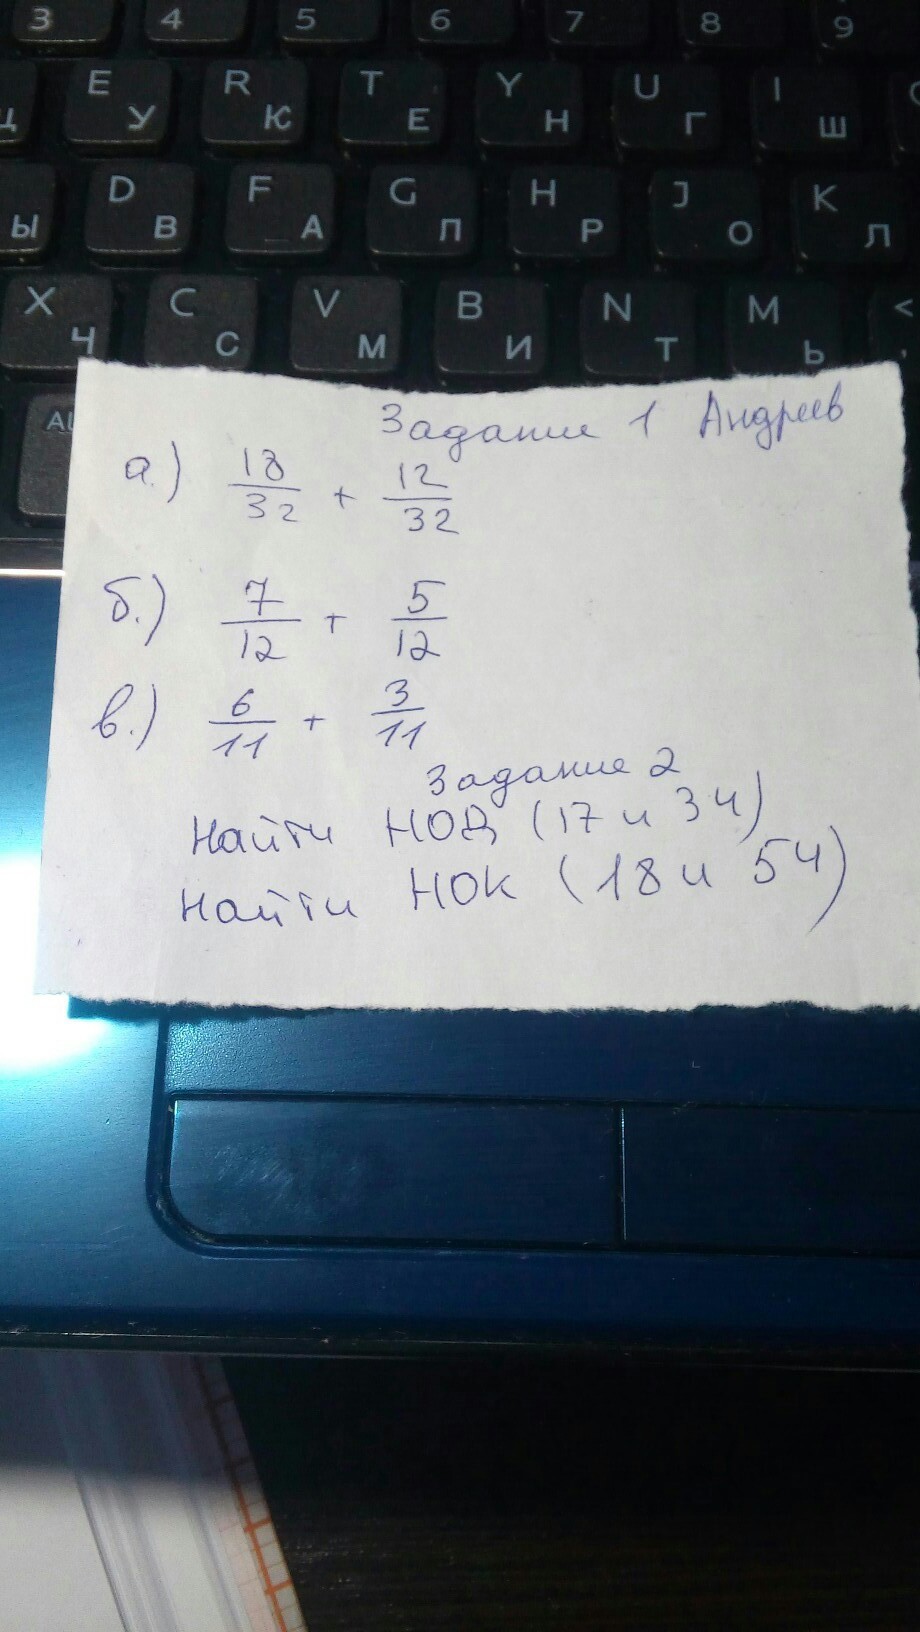 3 4 5 6 7 8 9
Ц E У R К T Е Y Н U Г I Ш
Ы D В F А G П H Р J О K Л
X Ч C С V М B И N Т M Ь <
Задание 1 Андреев
а.) 18/32 + 12/32
б.) 7/12 + 5/12
в.) 6/11 + 3/11
Задание 2
Найти НОД (17 и 34)
Найти НОК (18 и 54)